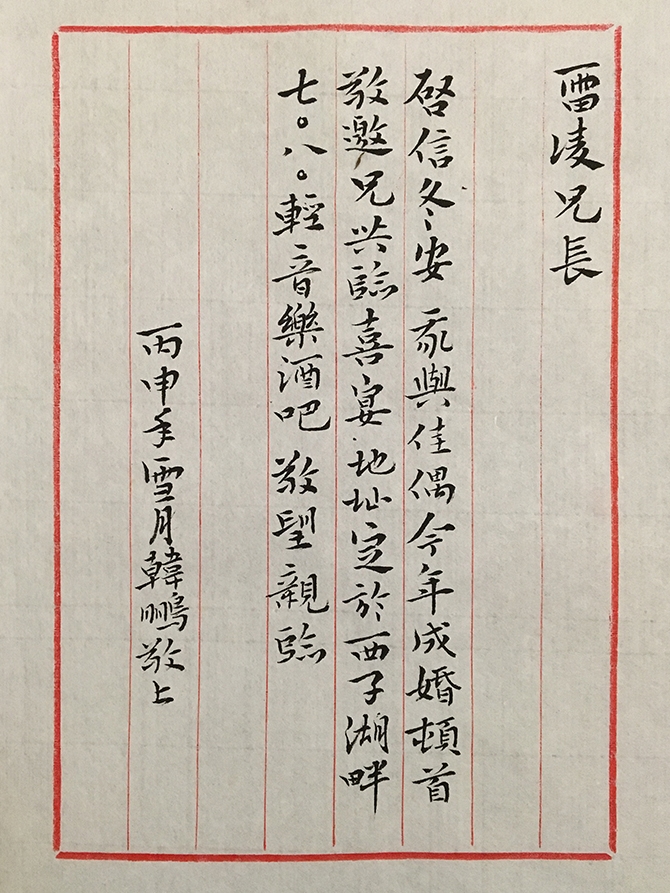 雷凌兄長
啓信冬安 我與佳偶今年成婚頓首
敬邀兄共臨喜宴 地址定於西子湖畔
七〇八〇輕音樂酒吧 敬望親臨
丙申年雪月韓鵬敬上